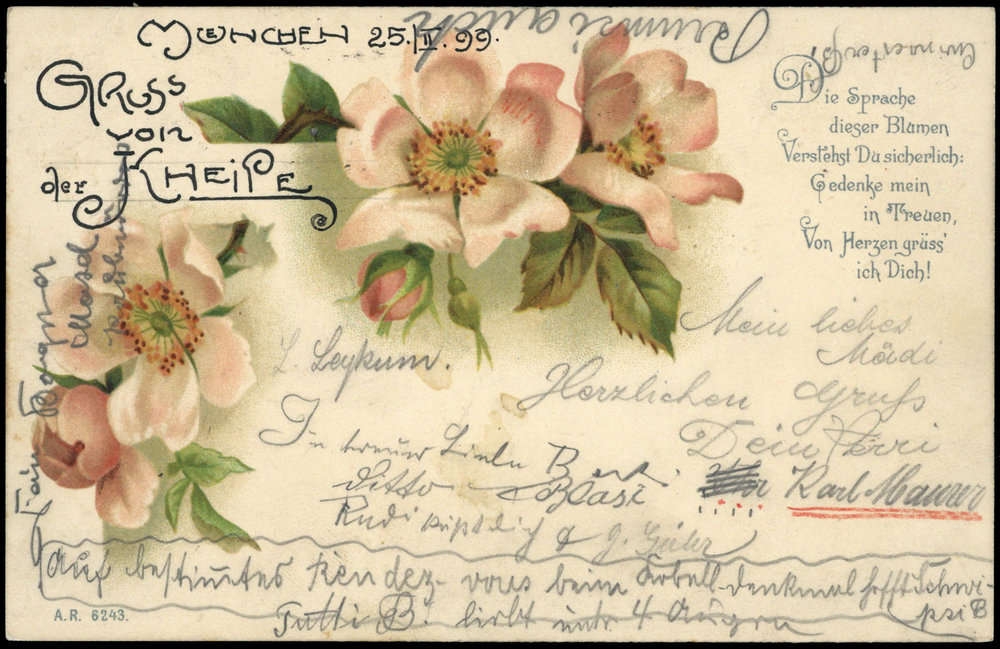 MÜNCHEN 25./II. 99.
GRUSS
VON
der KNEIPE
Die Sprache
dieser Blumen
Verstehst Du sicherlich:
Gedenke mein
in Treuen,
Von Herzen grüss'
ich Dich!
Mein liebes
Mädi
Herzlichen Gruss
Dein Ferri
Karl Maurer
L. Leykum.
In treuer Liebe
Ditto Blasi
Rudi küsst dich &
Auf bestimtes Rendez-vous beim Kobell-denkmal hofft Schwi-
psi B
Tutti B. liebt unter 4 Augen
A.R. 6243.